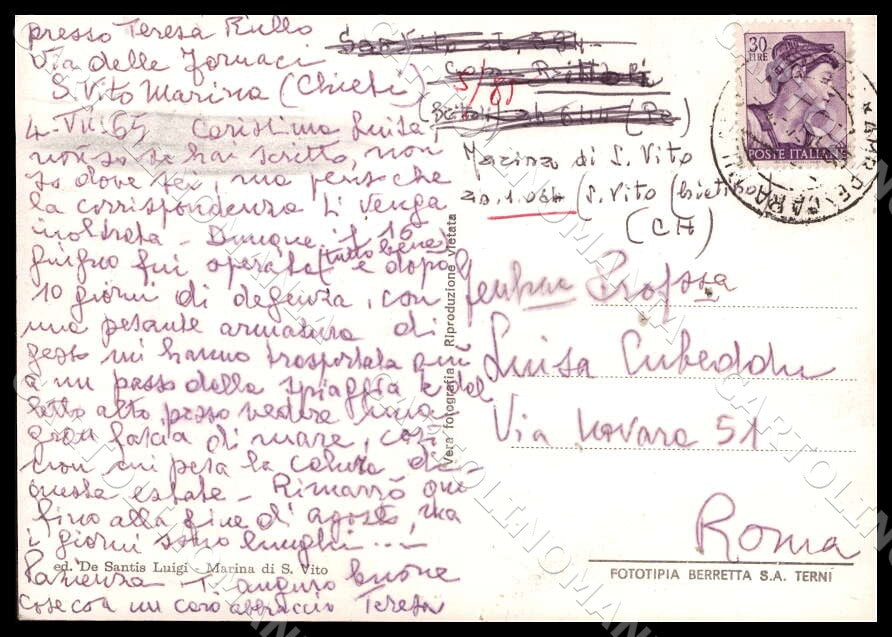 presso Teresa Rullo
Via delle Fornaci
S. Vito Marina (Chieti)
4-VII-65 Carissima Luisa
non so se hai scritto, non
so dove sei, ma penso che
la corrispondenza ti venga
inoltrata - Dunque il 16
giugno fui operata (tutto bene) e dopo
10 giorni di degenza, con
una pesante armatura di
gesso mi hanno trasportata qui
a un passo della spiaggia e dal
letto alto posso vedere una
gran fascia di mare, così
non mi pesa la calura di
questa estate - Rimarrò qui
fino alla fine di agosto, ma
i giorni sono lunghi ...
ed. De Santis Luigi - Marina di S. Vito
Pazienza - Ti auguro buone
cose con un caro abbraccio Teresa
Vera fotografia - Riproduzione vietata
5/81
Marina di S. Vito
(S. Vito Chietino)
(CH)
30 LIRE
POSTE ITALIANE
Gent.ma Prof.ssa
Luisa Cubeddu
Via Novara 51
Roma
FOTOTIPIA BERRETTA S.A. TERNI
CARTOLINOMAN